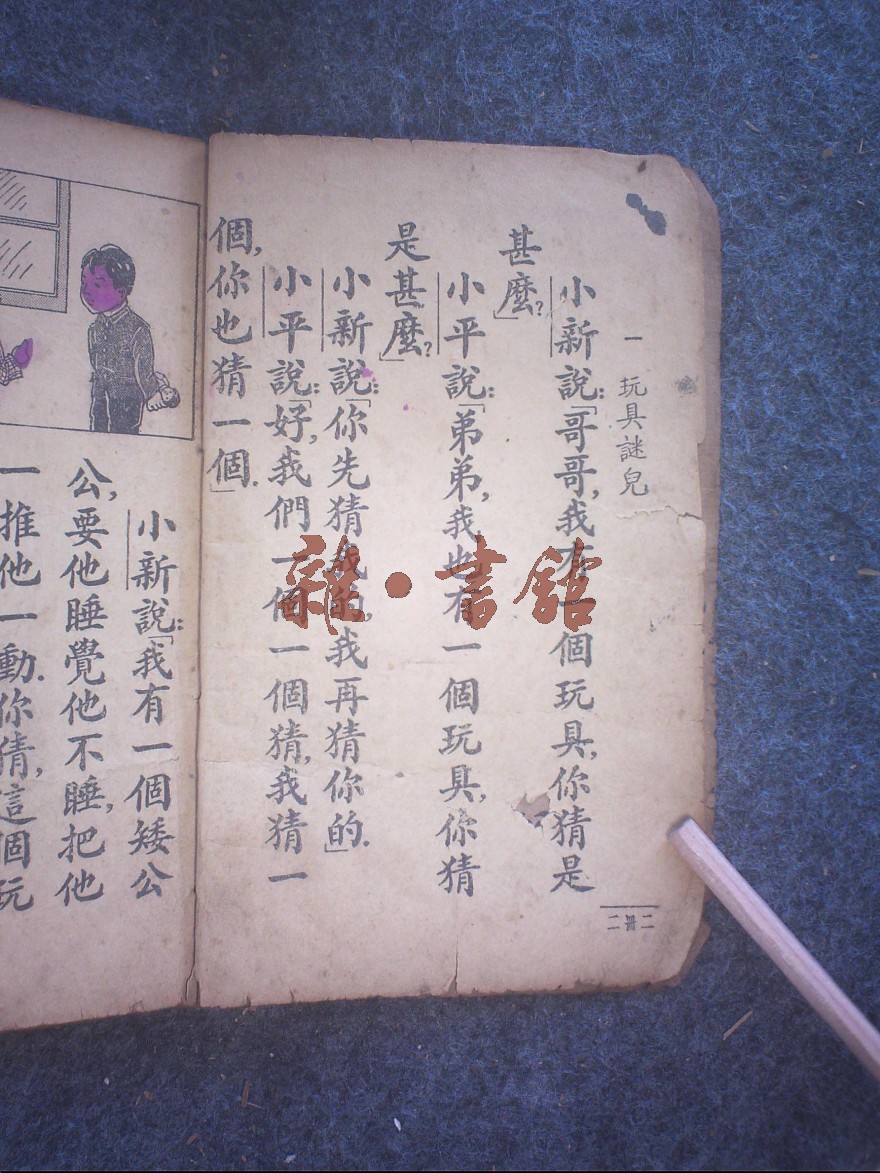 一 玩具謎兒
小新說：「哥哥，我有一個玩具，你猜是
甚麼？」
小平說：「弟弟，我也有一個玩具，你猜
是甚麼？」
小新說：「你先猜我的，我再猜你的．」
小平說：「好，我們一個一個猜，我猜一
個，你也猜一個．」
二冊二
小新說：「我有一個矮公
公，要他睡覺他不睡，把他
一推他一動．你猜，這個玩
雜·書舘